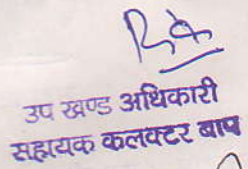 उप खण्ड अधिकारी
सहायक कलक्टर बाप